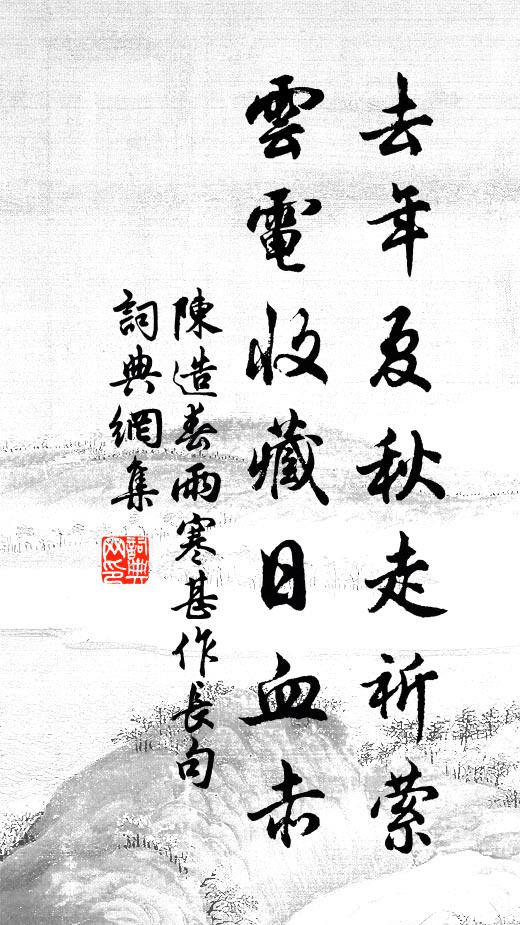 去年夏秋走祈禜
雲電收藏日血赤
陳造春雨寒甚作長句
詞典網集
詞典网印